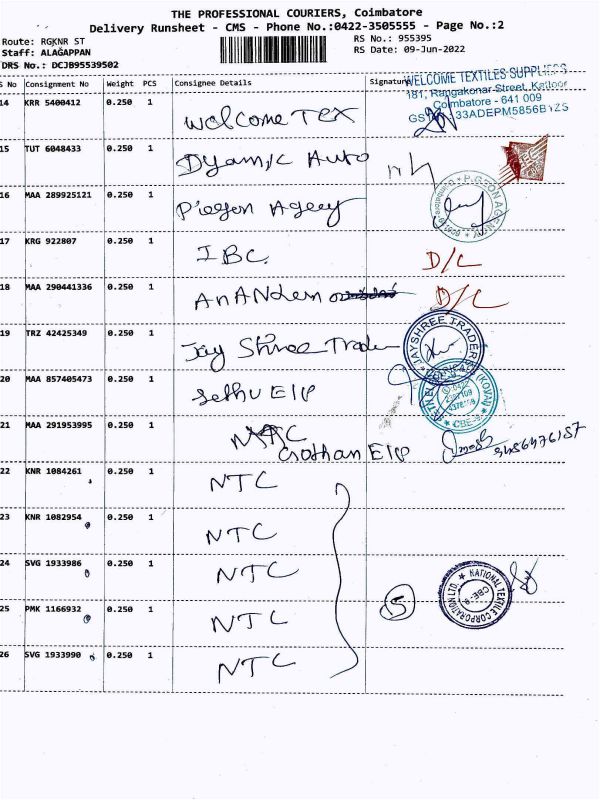 THE PROFESSIONAL COURIERS, Coimbatore
Delivery Runsheet - CMS - Phone No.:0422-3505555 - Page No.:2
Route: RGKNR ST
RS No.: 955395
Staff: ALAGAPPAN
RS Date: 09-Jun-2022
DRS No.: DCJB95539502
S No Consignment No Weight PCS Consignee Details Signature
WELCOME TEXTILES SUPPLIERS
181, Rangakonar Street, Kattoor
Coimbatore - 641 009
GST 33ADEPM5856B1ZS
14 KRR 5400412 0.250 1 Welcome Tex
15 TUT 6048433 0.250 1 Dyamic Auto
16 MAA 289925121 0.250 1 Piegon Agecy
PIGEON AGENCY
17 KRG 922807 0.250 1 IBC. D/C
18 MAA 290441336 0.250 1 ANANdam D/C
19 TRZ 42425349 0.250 1 Jay Shree Trader
JAYSHREE TRADER
20 MAA 857405473 0.250 1 Sethu E/P
(KOVAI)
CBE-9
21 MAA 291953995 0.250 1 Gothan E/P 9486476187
22 KNR 1084261 0.250 1 NTC
23 KNR 1082954 0.250 1 NTC
24 SVG 1933986 0.250 1 NTC
25 PMK 1166932 0.250 1 NTC 5
NATIONAL TEXTILE CORPORATION LTD.
CBE-9
26 SVG 1933990 0.250 1 NTC